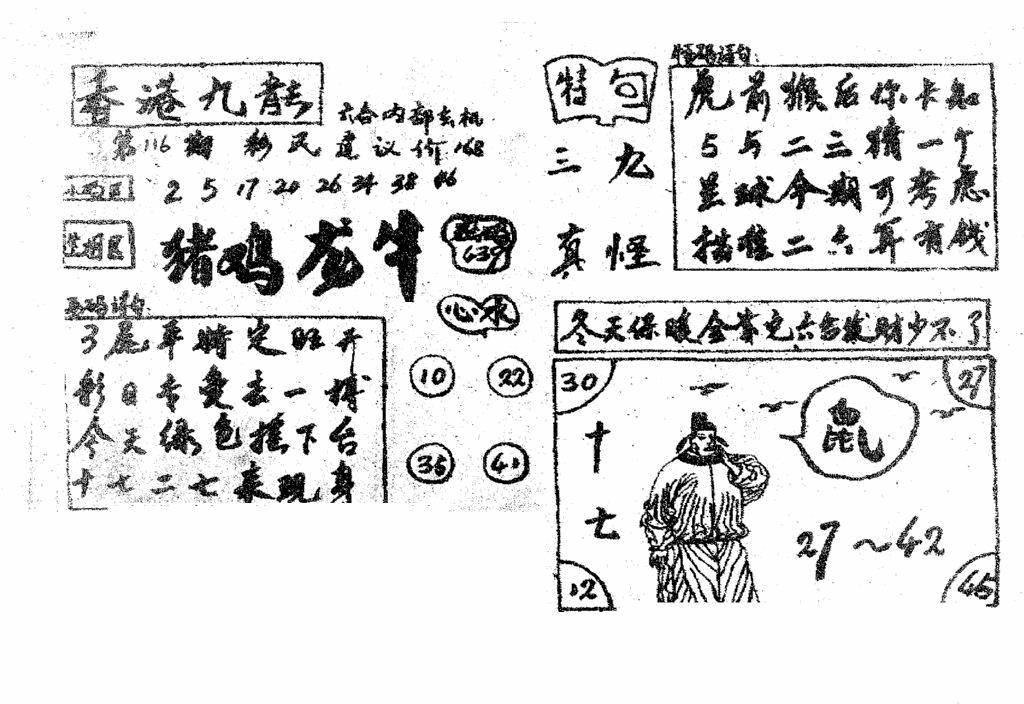 香港九龍
六合内部玄机
第116期 彩民建议价168
2 5 17 20 26 34 38 46
生相区
猪鸡龙牛
639
3尾平特定旺开
彩日专爱去一搏
今天绿色摇下台
十七二七来现身
心水
10 22
36 41
特句
三九
真怪
虎前猴后你卡知
5与二三猜一个
星球今期可考虑
二六耳有钱
冬天保暖全靠它六合发财少不了
30 27
鼠
十七
27~42
12 45